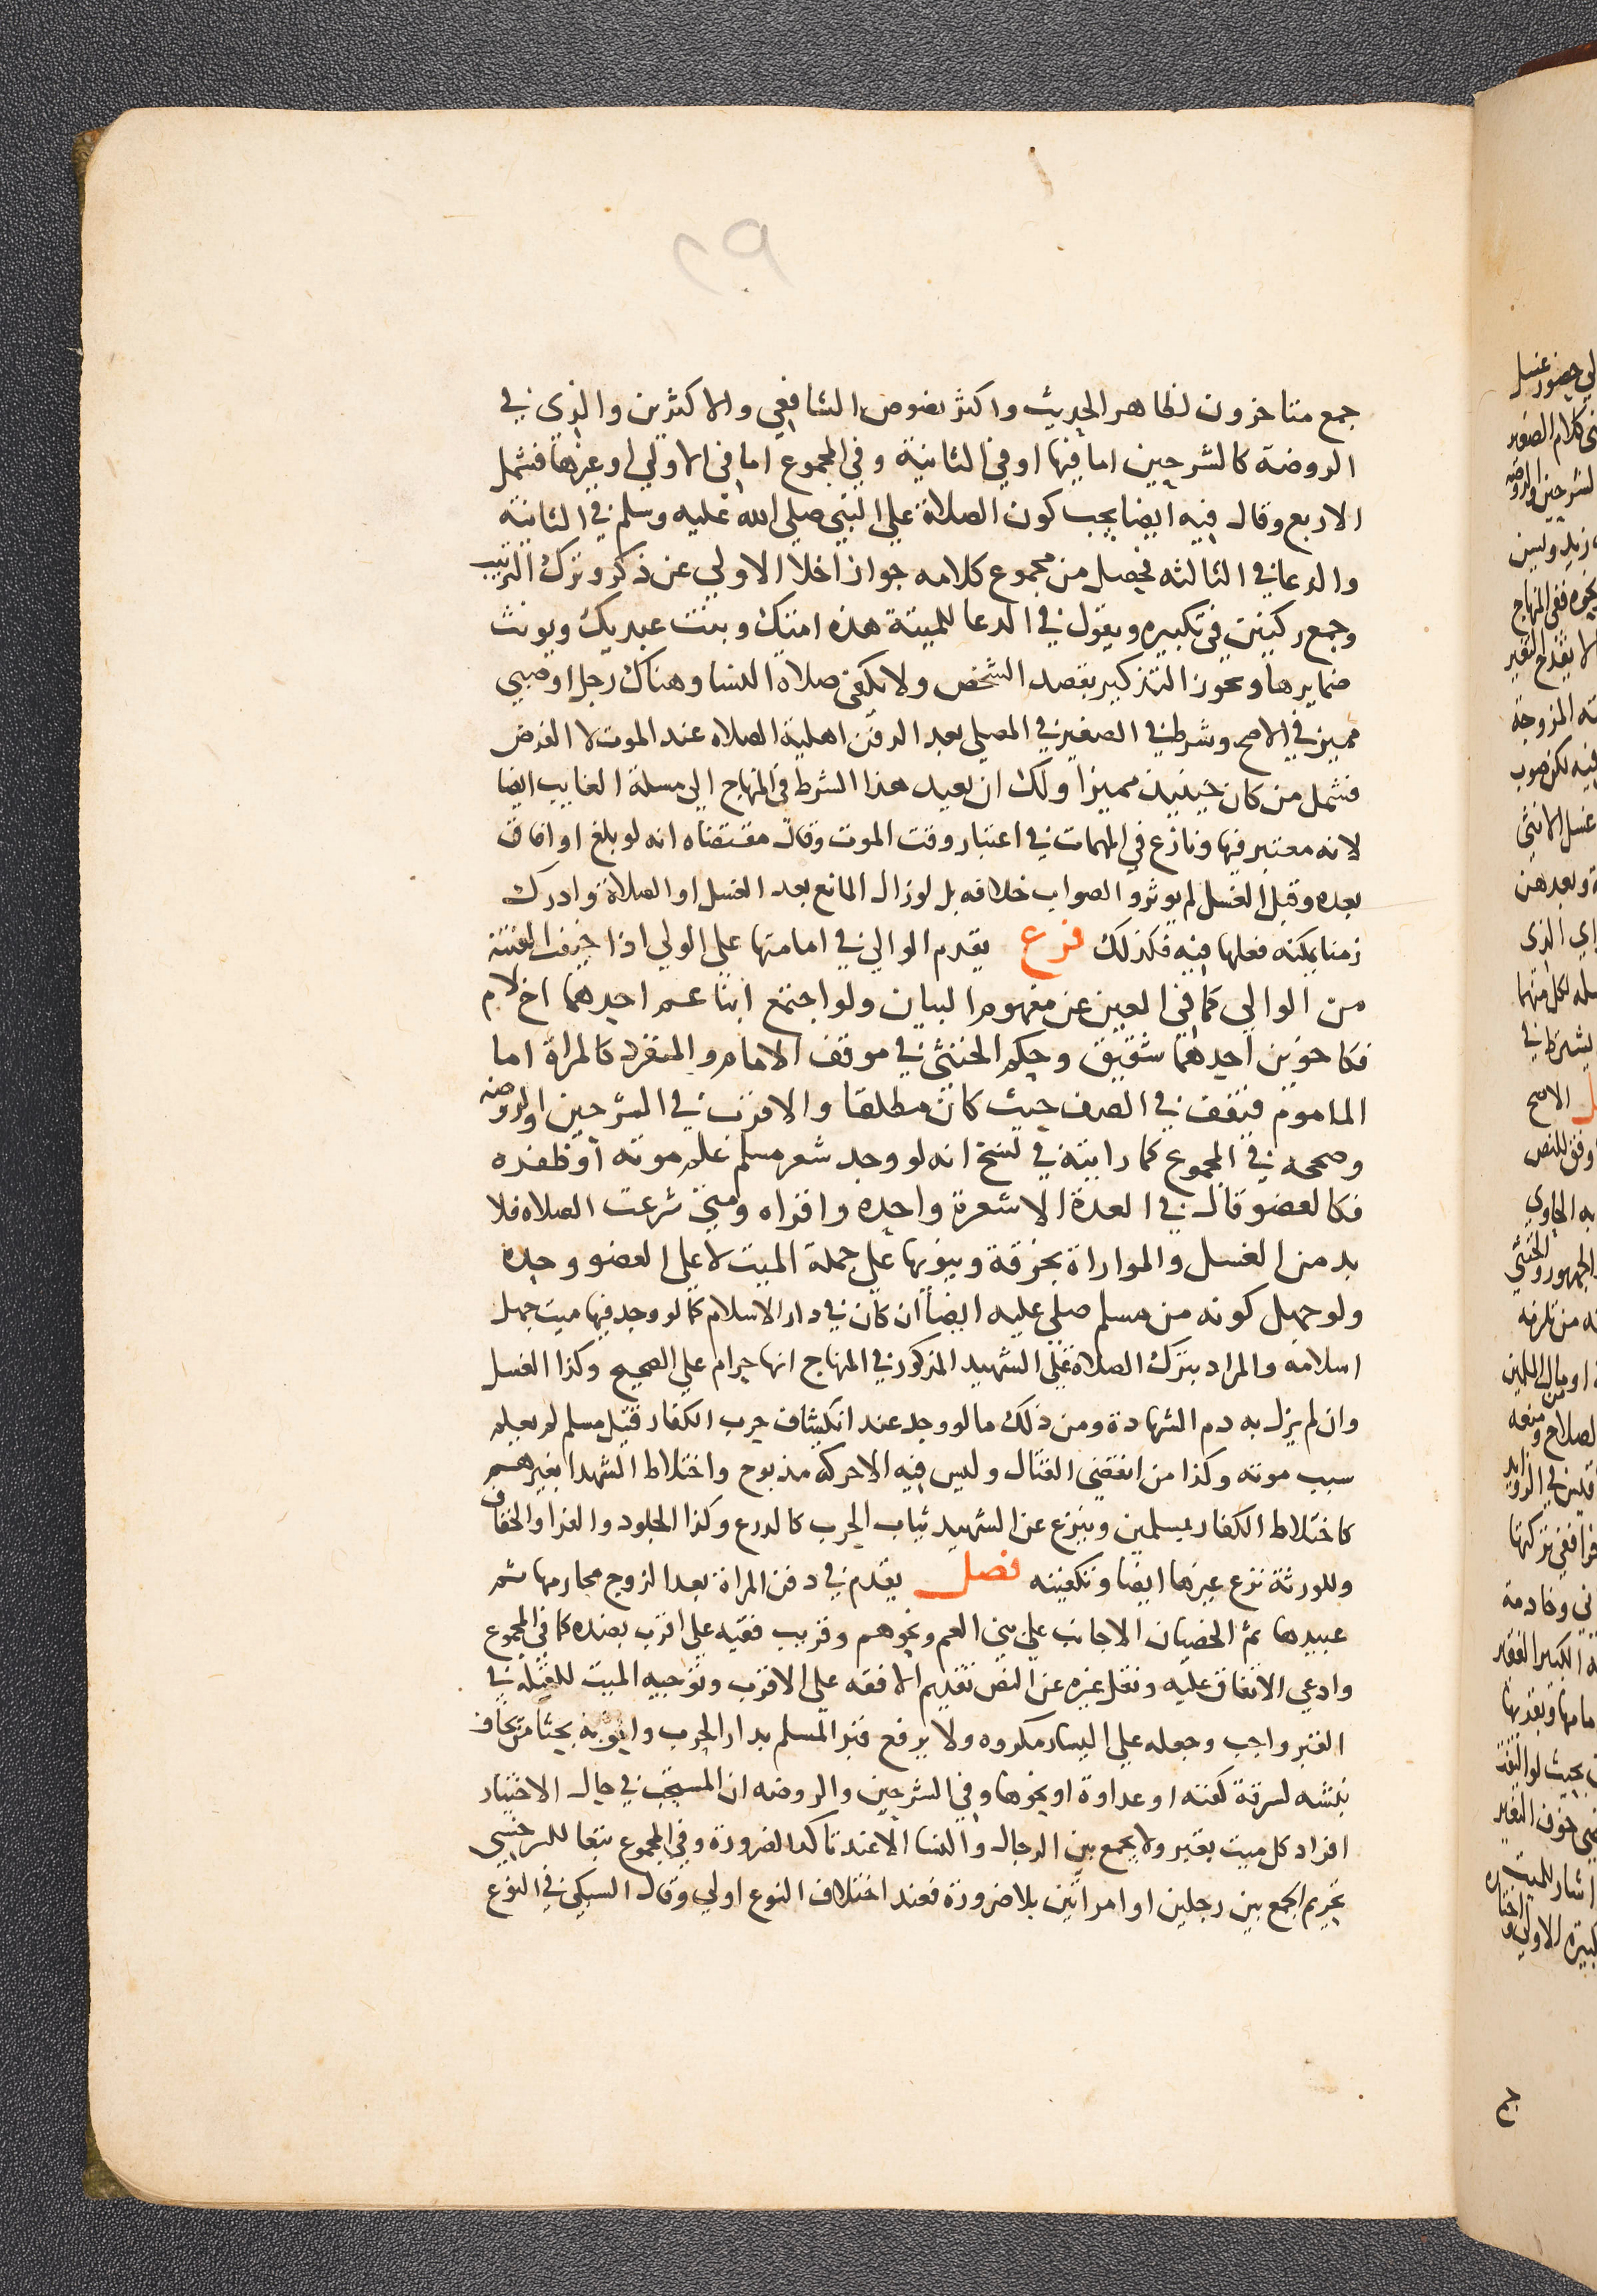 ٢٩
جمع متاخرون لظاهر الحديث واكثر نصوص الشافعي والاكثرين والذى في
الروضة كالشرحين اما فيها او في الثانية وفي المجموع اما في الاولي او غيرها فتشمل
الاربع وقال فيه ايضا يجب كون الصلاة علي النبي صلي الله عليه وسلم في الثانية
والدعا في الثالثه فيحصل من مجموع كلامه جواز اخلا الاولي عن ذكر وترك الترتيب
وجمع ركنين في تكبيره ويقول في الدعا للميتة هذه امتك وبنت عبديك ويونث
ضمايرها ويجوز التذكير بقصد الشخص ولا تكفي صلاة النسا وهناك رجل او صبي
مميز في الاصح وشرط في الصغير في المصلي بعد الدفن اهلية الصلاه عند الموت لا الفرض
فتشمل من كان حينيذ مميزا ولك ان تعيد هذا الشرط في المنهاج الي مسلة الغايب ايضا
لانه معتبر فيها ونازع في المهمات في اعتبار وقت الموت وقال مقتضاه انه لو بلغ او افاق
بعده وقبل الغسل لم يوثر والصواب خلافه بل لو زال المانع بعد الغسل او الصلاة وادرك
زمنا يمكنه فعلها فيه فكذلك فرع يقدم الوالي في امامتها علي الولي اذا خيفت الفتنة
من الوالي كما في العين عن مفهوم البيان ولو اجتمع ابنا عم احدهما اخ لام
فكاخوين احدهما شقيق وحكم الخنثى في موقف الامام والمنفرد كالمراة اما
الماموم فتقف في الصف حيث كان مطلقا والاقرب في الشرحين والروضه
وصححه في المجموع كما رايته في نسخ انه لو وجد شعر مسلم علم موته او ظفره
فكالعضو قال في العدة الا شعرة واحده واقراه ومتي شرعت الصلاه فلا
بد من الغسل والمواراة بخرقة وينويها علي جملة الميت لا علي العضو وحده
ولو جهل كونه من مسلم صلي عليه ايضا ان كان في دار الاسلام كما لو وجد فيها ميت جهل
اسلامه والمراد بترك الصلاة علي الشهيد المذكور في المنهاج انها حرام علي الصحيح وكذا الغسل
وان لم يزل به دم الشهادة ومن ذلك ما لو وجد عند انكشاف حرب الكفار قتيل مسلم لم يعلم
سبب موته وكذا من انقضي القتال وليس فيه الا حركة مذبوح واختلاط الشهدا بغيرهم
كاختلاط الكفار بمسلمين وينزع عن الشهيد ثياب الحرب كالدرع وكذا الجلود والفرا والخفاف
وللورثة نزع غيرها ايضا وتكفينه فصل يقدم في دفن المراة بعد الزوج محارمها ثم
عبيدها ثم الخصيان الاجانب علي بني العم ونحوهم وقريب فقيه علي اقرب بضده كما في المجموع
وادعي الاتفاق عليه ونقل غيره عن النص تقديم الافقه علي الاقرب وتوجيه الميت للقبلة في
القبر واجب وجعله علي اليسار مكروه ولا يرفع قبر المسلم بدار الحرب بحثا من يخاف
نبشه لسرقة كفنه او عداوة او نحوها وفي الشرحين والروضه ان المستحب في حال الاختيار
افراد كل ميت بقبر ولا يجمع بين الرجال والنسا الا عند تاكد الضرورة وفي المجموع تبعا للسرخسي
تحريم الجمع بين رجلين او امراتين بلا ضرورة فعند اختلاف النوع اولي وقال السبكي في النوع